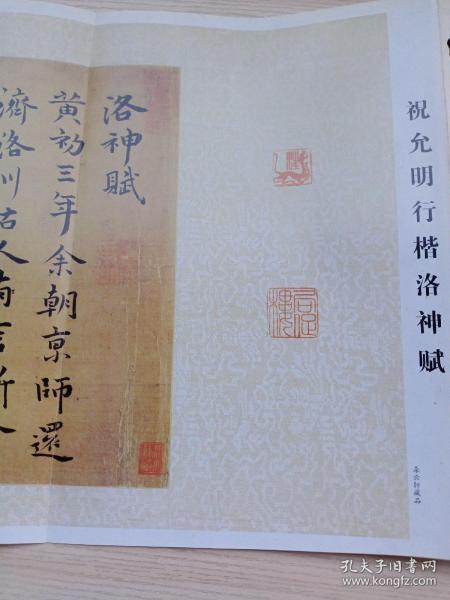 祝允明行楷洛神赋
朵云轩藏品
洛神賦
黃初三年余朝京師還
濟洛川古人有言斯
孔夫子旧书网
www.kongfz.com